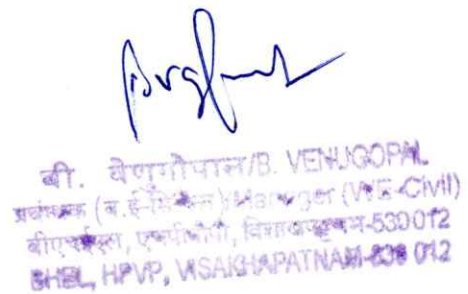 बी. वेणुगोपाल/B. VENUGOPAL
प्रबंधक Manager (WE-Civil)
बीएचईएल, एचपीवीपी, विशाखपट्टणम-530012
BHEL, HPVP, VISAKHAPATNAM-530 012